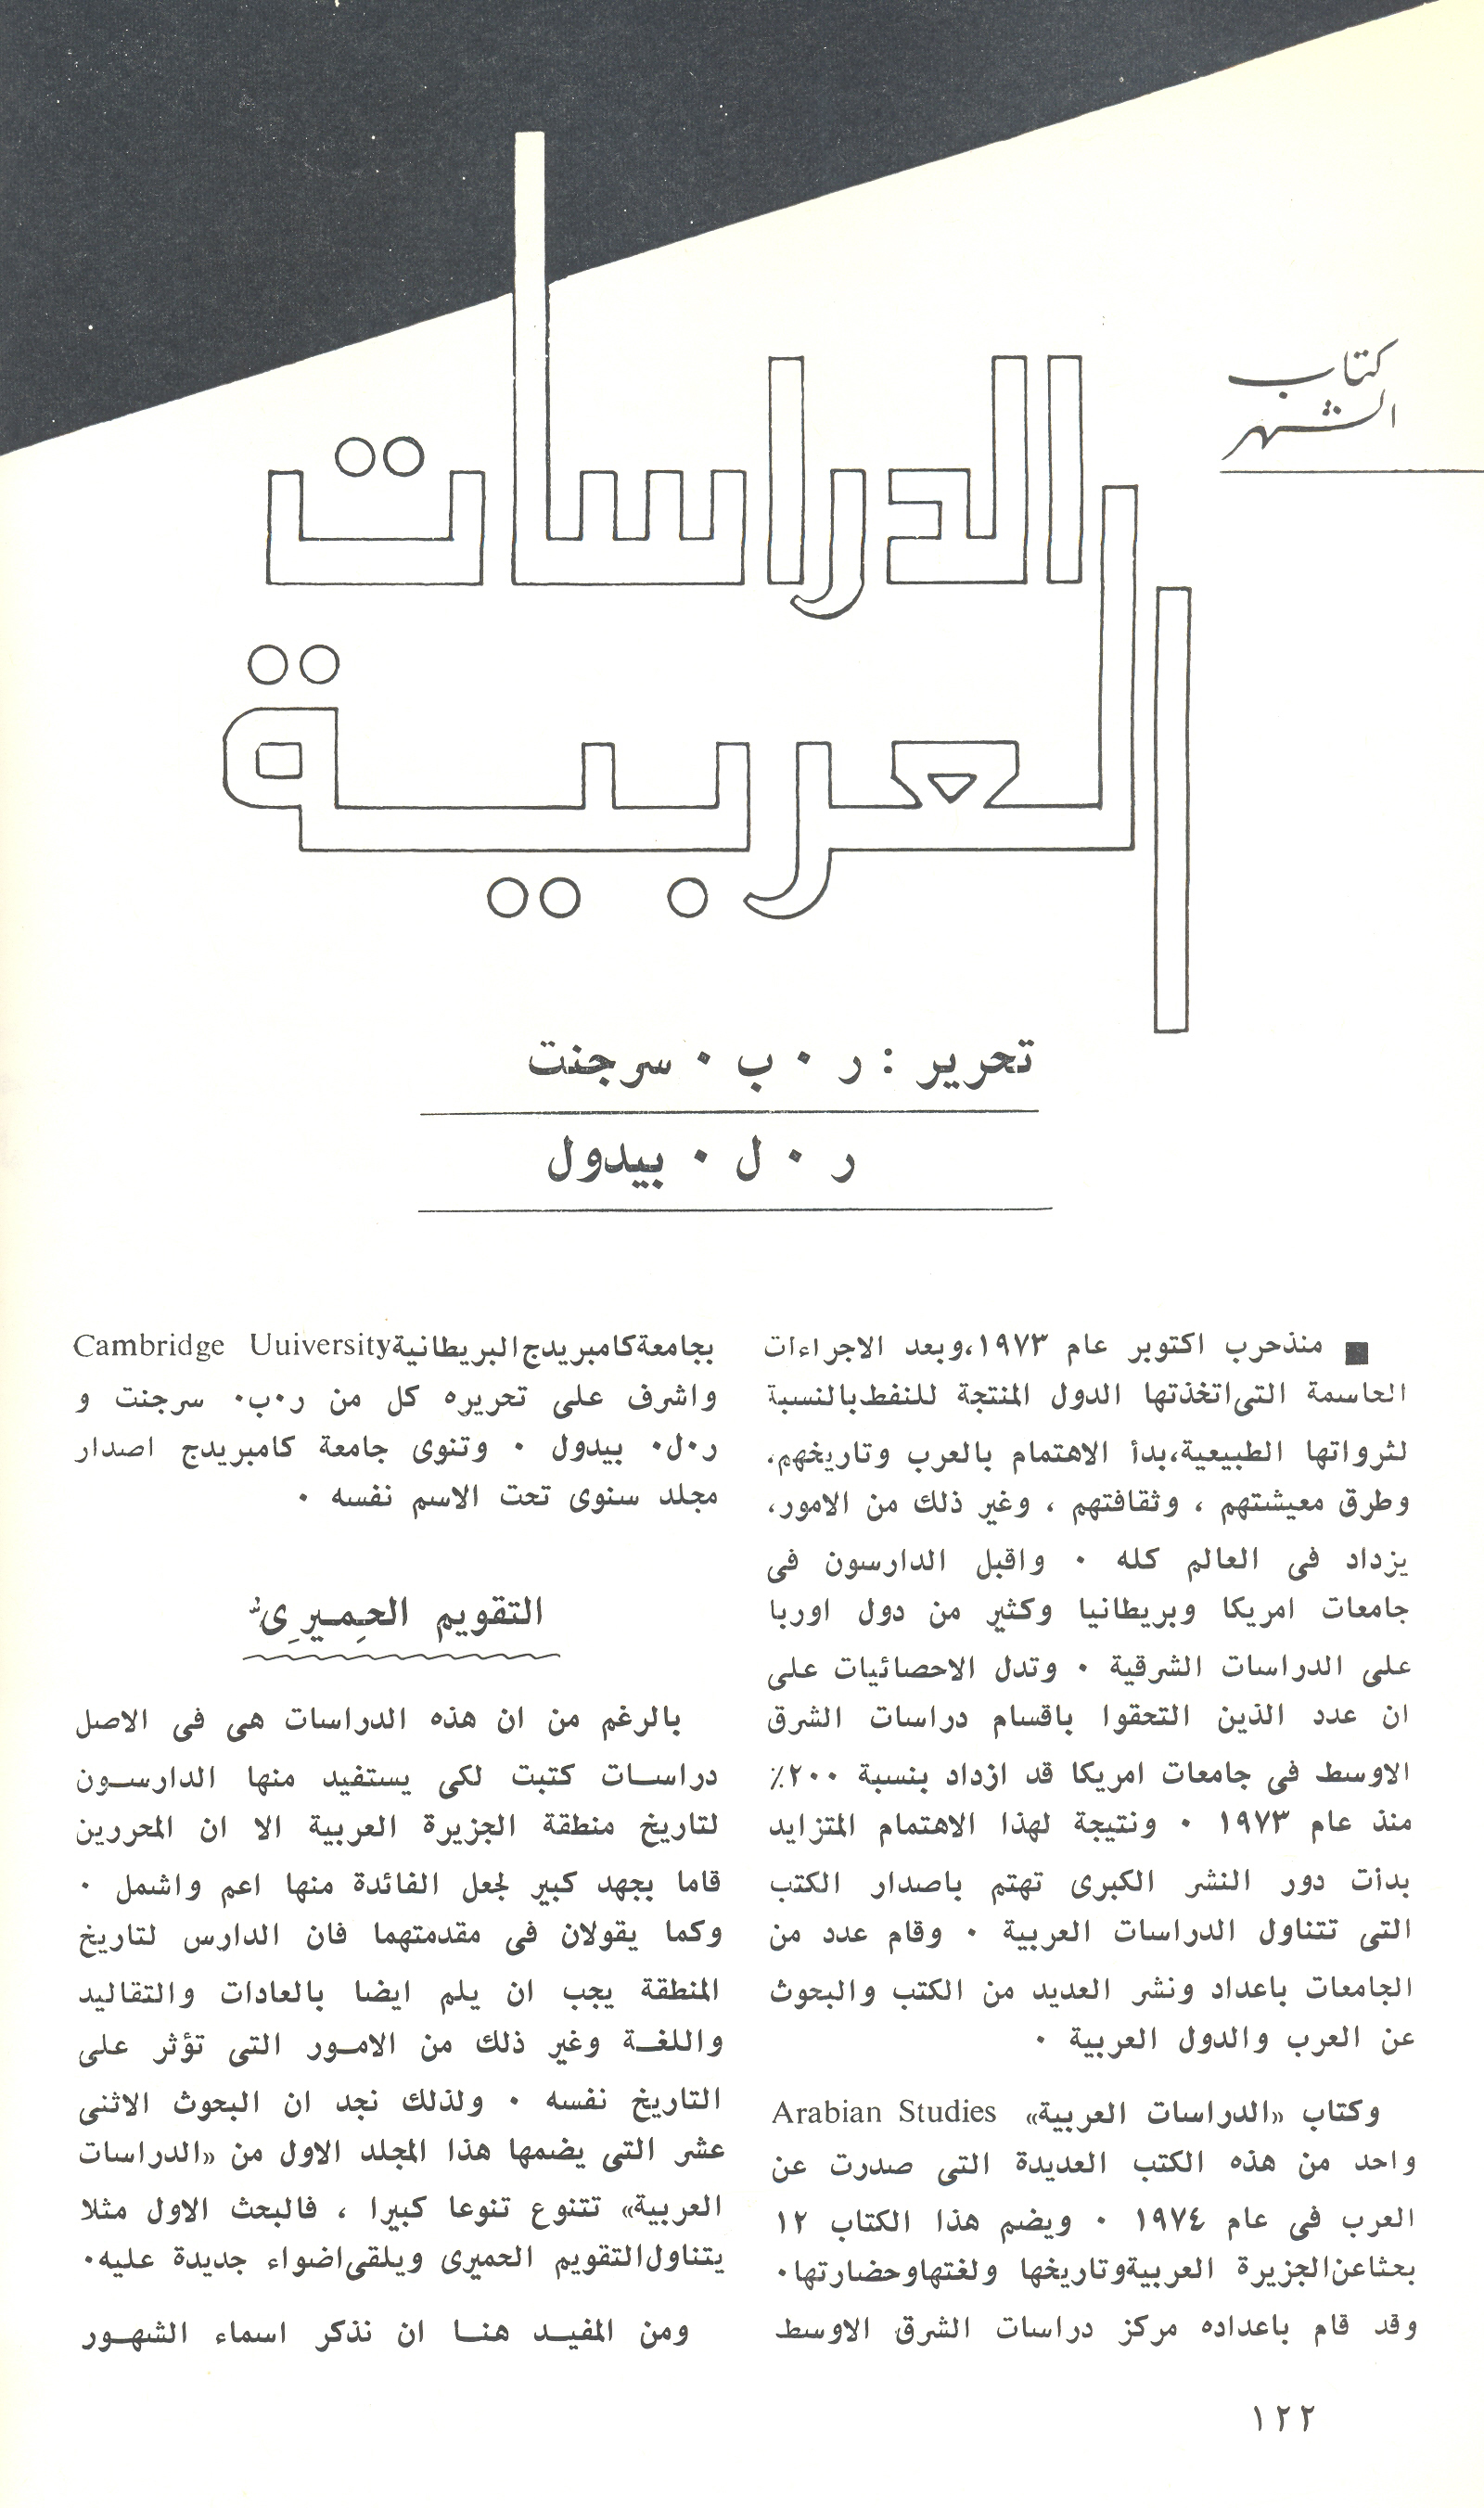 كتاب
الشهر
الدراسات
العربية
تحرير : ر ٠ ب ٠ سرجنت
ر ٠ ل ٠ بيدول
■ منذحرب اكتوبر عام ١٩٧٣،وبعد الاجراءات
الحاسمة التى اتخذتها الدول المنتجة للنفط بالنسبة
لثرواتها الطبيعية،بدأ الاهتمام بالعرب وتاريخهم،
وطرق معيشتهم ، وثقافتهم ، وغير ذلك من الامور،
يزداد فى العالم كله ٠ واقبل الدارسون فى
جامعات امريكا وبريطانيا وكثير من دول اوربا
على الدراسات الشرقية ٠ وتدل الاحصائيات على
ان عدد الذين التحقوا باقسام دراسات الشرق
الاوسط فى جامعات امريكا قد ازداد بنسبة ٢٠٠٪
منذ عام ١٩٧٣ ٠ ونتيجة لهذا الاهتمام المتزايد
بدأت دور النشر الكبرى تهتم باصدار الكتب
التى تتناول الدراسات العربية ٠ وقام عدد من
الجامعات باعداد ونشر العديد من الكتب والبحوث
عن العرب والدول العربية ٠
وكتاب «الدراسات العربية» Arabian Studies
واحد من هذه الكتب العديدة التى صدرت عن
العرب فى عام ١٩٧٤ ٠ ويضم هذا الكتاب ١٢
بحثا عن الجزيرة العربية وتاريخها ولغتها وحضارتها٠
وقد قام باعداده مركز دراسات الشرق الاوسط
بجامعة كامبريدج البريطانية Cambridge Uuiversity
واشرف على تحريره كل من ر٠ب٠ سرجنت و
ر٠ل٠ بيدول ٠ وتنوى جامعة كامبريدج اصدار
مجلد سنوى تحت الاسم نفسه ٠
التقويم الحِميرِىّ
بالرغم من ان هذه الدراسات هى فى الاصل
دراسات كتبت لكى يستفيد منها الدارسون
لتاريخ منطقة الجزيرة العربية الا ان المحررين
قاما بجهد كبير لجعل الفائدة منها اعم واشمل ٠
وكما يقولان فى مقدمتهما فان الدارس لتاريخ
المنطقة يجب ان يلم ايضا بالعادات والتقاليد
واللغة وغير ذلك من الامور التى تؤثر على
التاريخ نفسه ٠ ولذلك نجد ان البحوث الاثنى
عشر التى يضمها هذا المجلد الاول من «الدراسات
العربية» تتنوع تنوعا كبيرا ، فالبحث الاول مثلا
يتناول التقويم الحميرى ويلقى اضواء جديدة عليه٠
ومن المفيد هنا ان نذكر اسماء الشهور
١٢٢